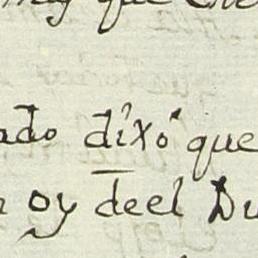 que
ado dixo que
oy deel Du